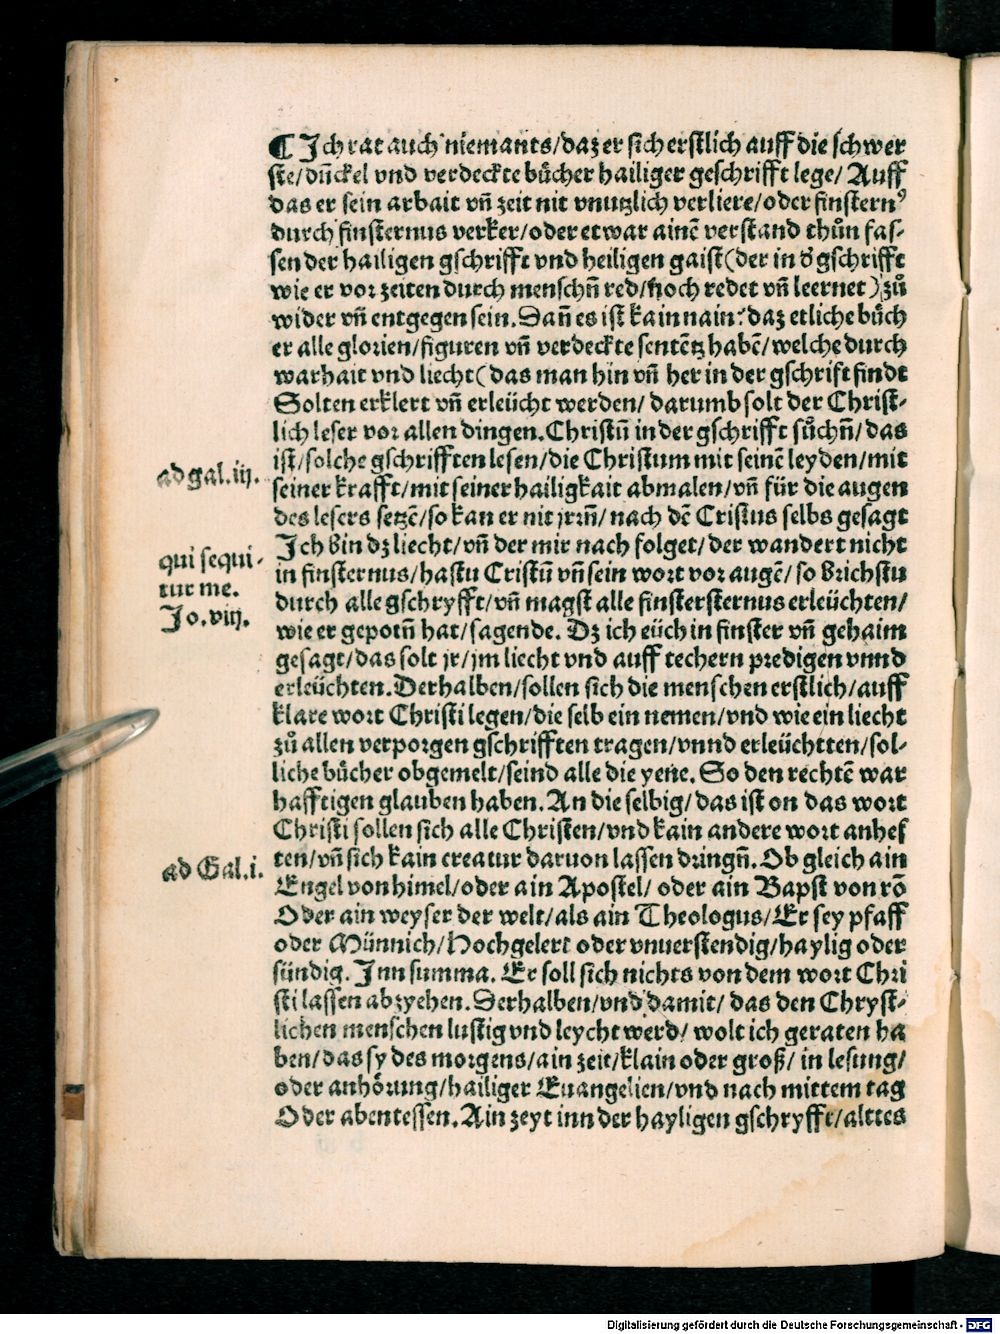 ¶ Ich rat auch niemants/daz er sich erstlich auff die schwer
ste/dūckel vnd verdeckte bücher hailiger geschrifft lege/Auff
das er sein arbait vñ zeit nit vnutzlich verliere/oder finstern⁹
durch finsternus verker/oder etwar ainē verstand thůn fas-
sen der hailigen gschrifft vnd heiligen gaist(der in d̛ gschrifft
wie er vor zeiten durch menschñ red/noch redet vñ leernet)zů
wider vñ entgegen sein. Dañ es ist kain nain: daz etliche büch
er alle glorien/figuren vñ verdeckte sentētz habē/welche durch
warhait vnd liecht(das man hin vñ her in der gschrift findt
Solten erklert vñ erleücht werden/ darumb solt der Christ-
lich leser vor allen dingen. Christū in der gschrifft sůchñ/das
ist/solche gschrifften lesen/die Christum mit seinē leyden/mit
ad gal. iij.
seiner krafft/mit seiner hailigkait abmalen/vñ für die augen
des lesers setzē/so kan er nit jrrñ/ nach dē Cristus selbs gesagt
Ich bin dz liecht/vñ der mir nach folget/der wandert nicht
qui sequi-
in finsternus/hastu Cristū vñ sein wort vor augē/ so brichstu
tur me.
durch alle gschryfft/vñ magst alle finstersternus erleüchten/
Jo. viij.
wie er gepotñ hat/sagende. Dz ich eüch in finster vñ gehaim
gesagt/das solt jr/jm liecht vnd auff techern predigen vnnd
erleüchten. Derhalben/sollen sich die menschen erstlich/auff
klare wort Christi legen/die selb ein nemen/vnd wie ein liecht
zů allen verporgen gschrifften tragen/vnnd erleüchtten/sol-
liche bücher obgemelt/seind alle die yene. So den rechtē war
hafftigen glauben haben. An die selbig/das ist on das wort
Christi sollen sich alle Christen/vnd kain andere wort anhef
ten/vñ sich kain creatur daruon lassen dringñ. Ob gleich ain
ad Gal. i.
Engel von himel/oder ain Apostel/ oder ain Bapst von rō
Oder ain weyser der welt/als ain Theologus/Er sey pfaff
oder Münnich/Hochgelert oder vnuerstendig/haylig oder
sündig. Inn summa. Er soll sich nichts von dem wort Chri
sti lassen abzyehen. Derhalben/vnd damit/ das den Chryst-
lichen menschen lustig vnd leycht werd/ wolt ich geraten ha
ben/das sy des morgens/ain zeit/klain oder groß/ in lesung/
oder anhörung/hailiger Euangelien/vnd nach mittem tag
Oder abentessen. Ain zeyt inn der hayligen gschryfft/alttes
Digitalisierung gefördert durch die Deutsche Forschungsgemeinschaft - DFG